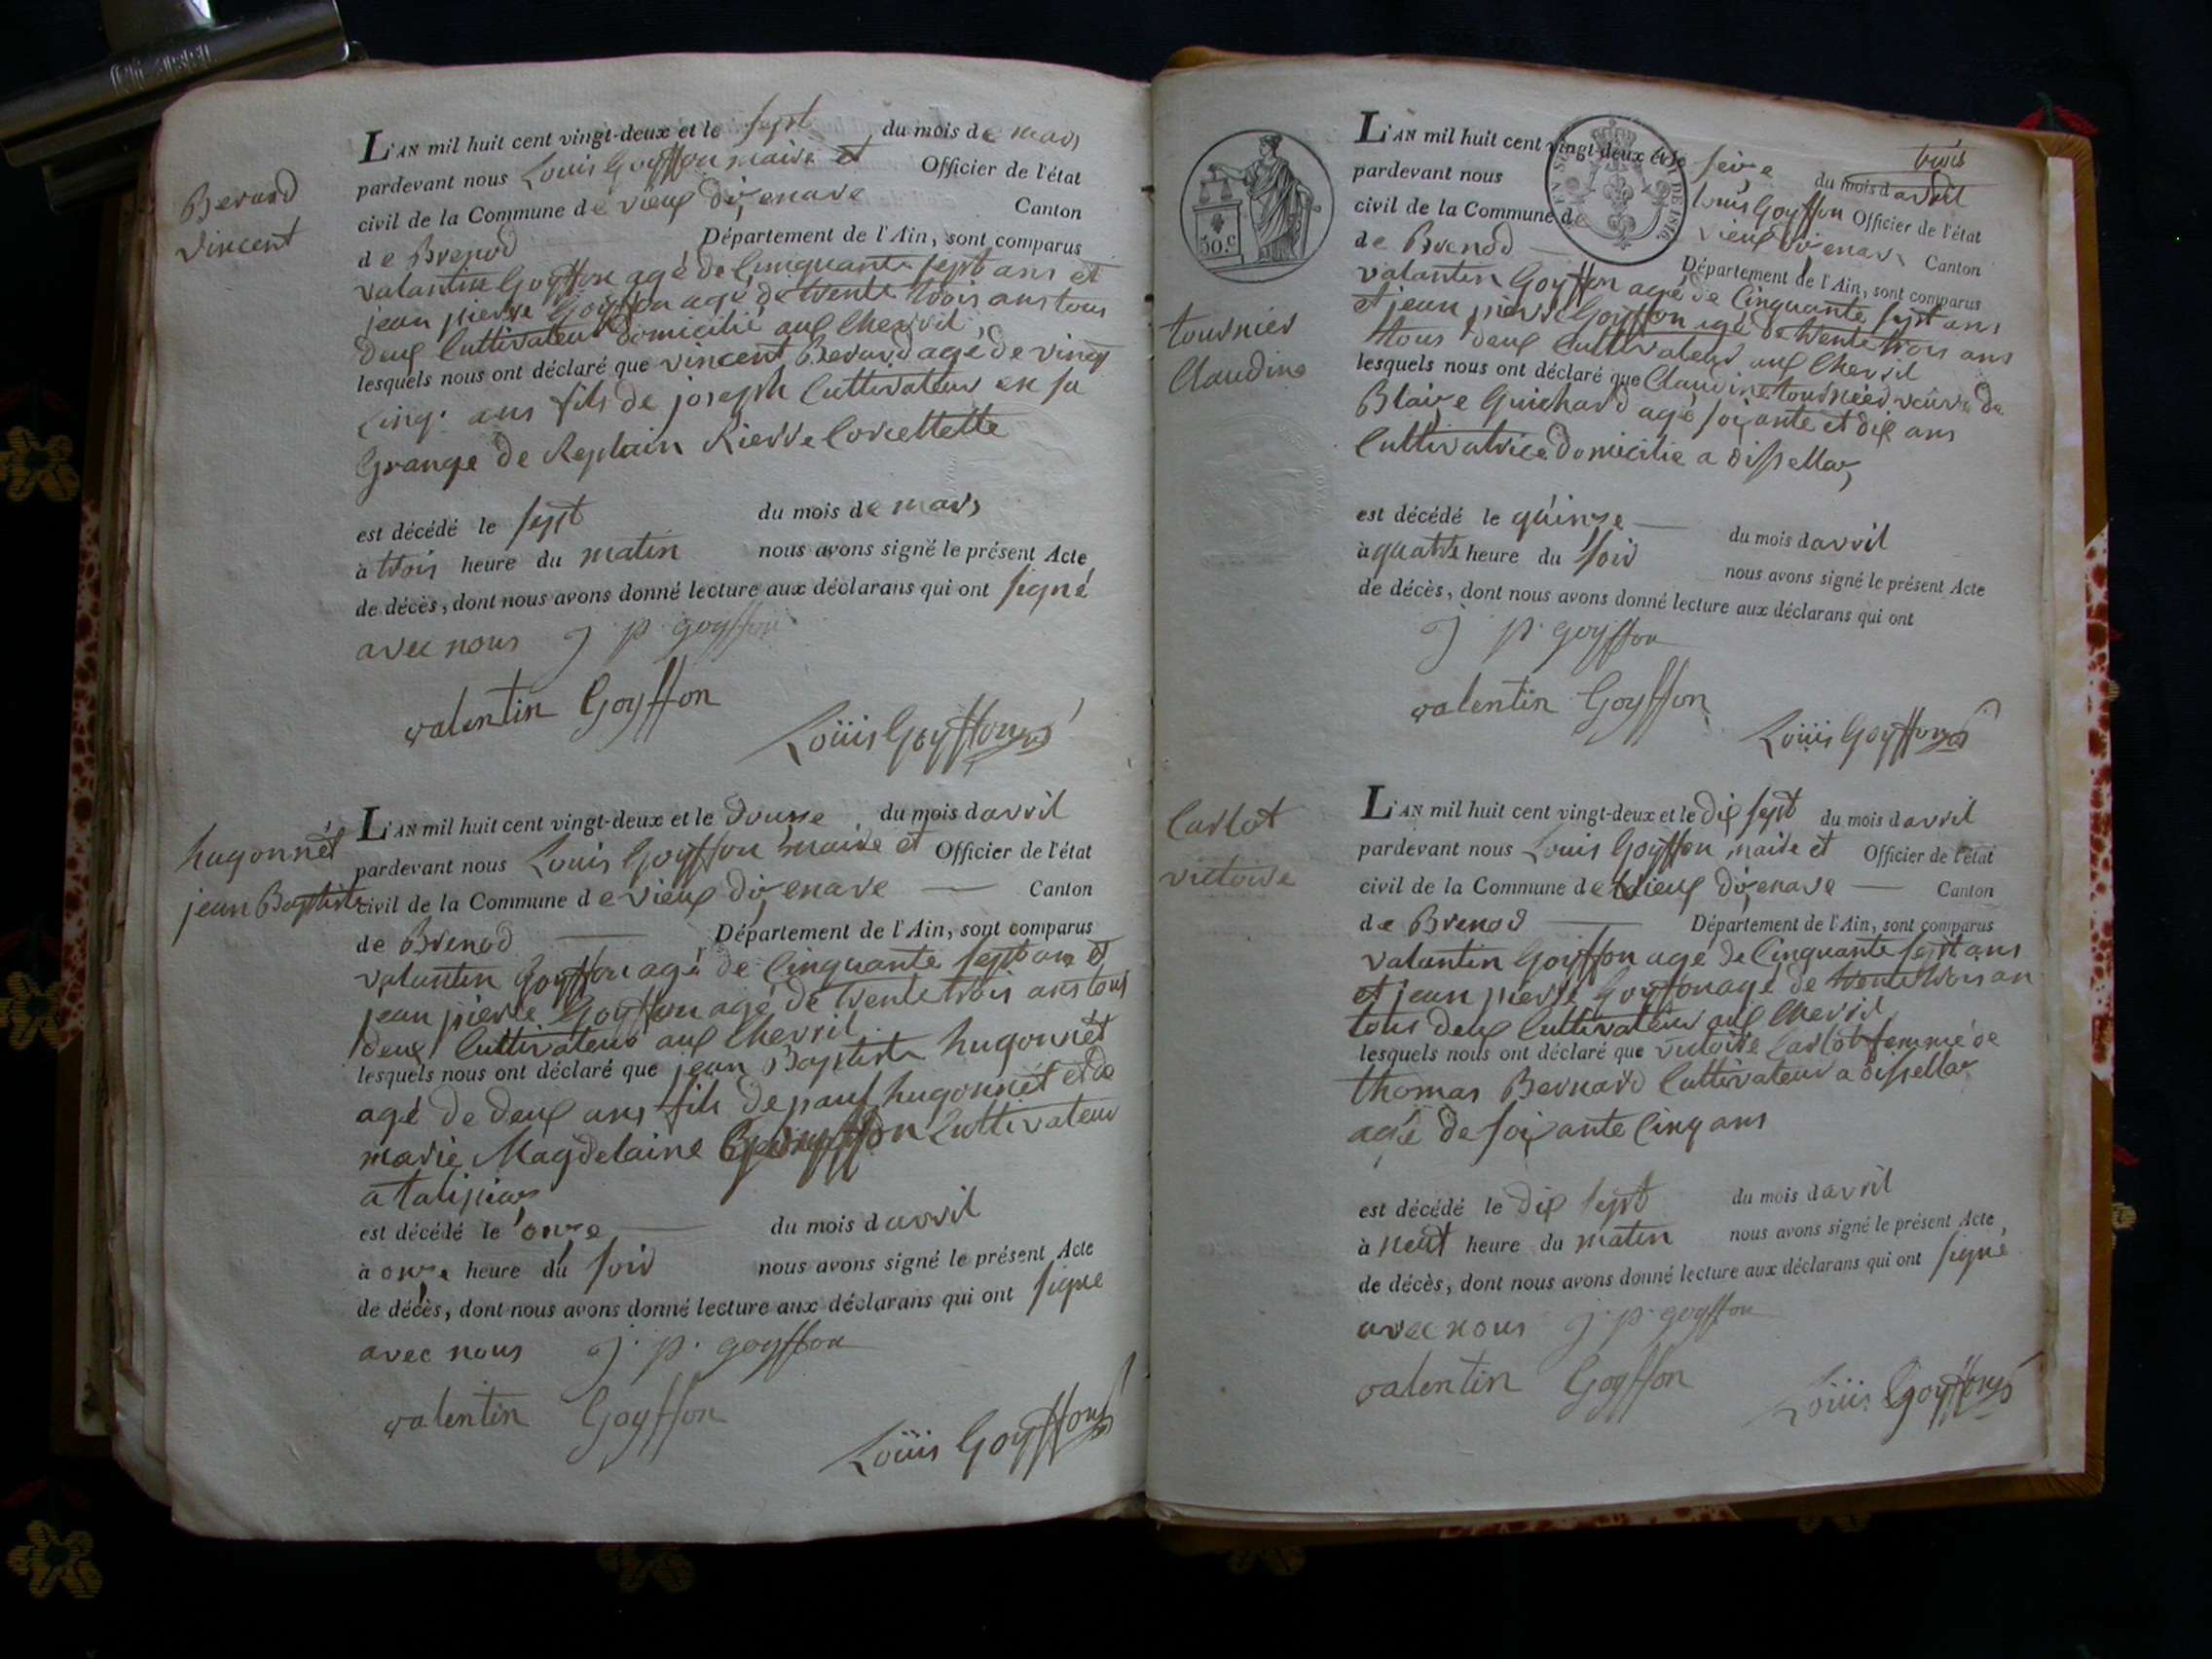 Berard
vincent
L'AN mil huit cent vingt-deux et le sept du mois de mars
pardevant nous Louis Goyffon maire et Officier de l'état
civil de la Commune de vieux dizenave Canton
de Brenod Département de l'Ain, sont comparus
valantin Goyffon agé de Cinquante sept ans et
jean pierre Goyffon agé de trente trois ans tous
deux Cultivateur domicilié aux Chevril
lesquels nous ont déclaré que vincent Berard agé de vingt
Cinq ans fils de joseph Cultivateur en sa
Grange de Replain
est décédé le sept du mois de mars
à trois heure du matin nous avons signé le présent Acte
de décès, dont nous avons donné lecture aux déclarans qui ont signé
avec nous j p goyffon
valentin Goyffon
Loüis Goyffon
hugonnet
jean Baptiste
L'AN mil huit cent vingt-deux et le douze du mois d avril
pardevant nous Louis Goyffon maire et Officier de l'état
civil de la Commune de vieux dizenave Canton
de Brenod Département de l'Ain, sont comparus
valantin Goyffon agé de Cinquante sept ans et
jean pierre Goyffon agé de trente trois ans tous
deux Cultivateus aux Chevril
lesquels nous ont déclaré que jean Baptiste hugonnet
agé de deux ans fils de paul hugonnet et de
marie Magdelaine Cultivateur
a talipiar
est décédé le onze du mois d avril
à onze heure du soir nous avons signé le présent Acte
de décès, dont nous avons donné lecture aux déclarans qui ont signe
avec nous j. p. goyffon
valentin Goyffon
Loüis Goyffon
50.c
tournier
Claudine
L'AN mil huit cent vingt-deux et le seize du mois d avril
trois
pardevant nous Louis Goyffon Officier de l'état
civil de la Commune de vieux dizenave Canton
de Brenod Département de l'Ain, sont comparus
valantin Goyffon agé de Cinquante sept ans
et jean pierre Goyffon agé de trente trois ans
tous deux Cultivateur aux Chevril
lesquels nous ont déclaré que Claudine tournier veuve de
Blaize Guichard agé soizante et dix ans
Cultivatrice domicilie a dissellaz
est décédé le quinze du mois d avril
à quatre heure du soir nous avons signé le présent Acte
de décès, dont nous avons donné lecture aux déclarans qui ont
j p. goyffon
valentin Goyffon
Loüis Goyffon
Carlot
victoire
L'AN mil huit cent vingt-deux et le dix sept du mois d avril
pardevant nous Louis Goyffon maire et Officier de l'état
civil de la Commune de vieux dizenave Canton
de Brenod Département de l'Ain, sont comparus
valantin Goyffon agé de Cinquante sept ans
et jean pierre Goyffon agé de trente trois an
tous deux Cultivateur aux Chevril
lesquels nous ont déclaré que victoire Carlot femme de
thomas Bernard Cultivateur a dissellaz
agée de soizante Cinq ans
est décédé le dix sept du mois d avril
à neuf heure du matin nous avons signé le présent Acte
de décès, dont nous avons donné lecture aux déclarans qui ont signé
avec nous j. p. goyffon
valentin Goyffon
Loüis Goyffon